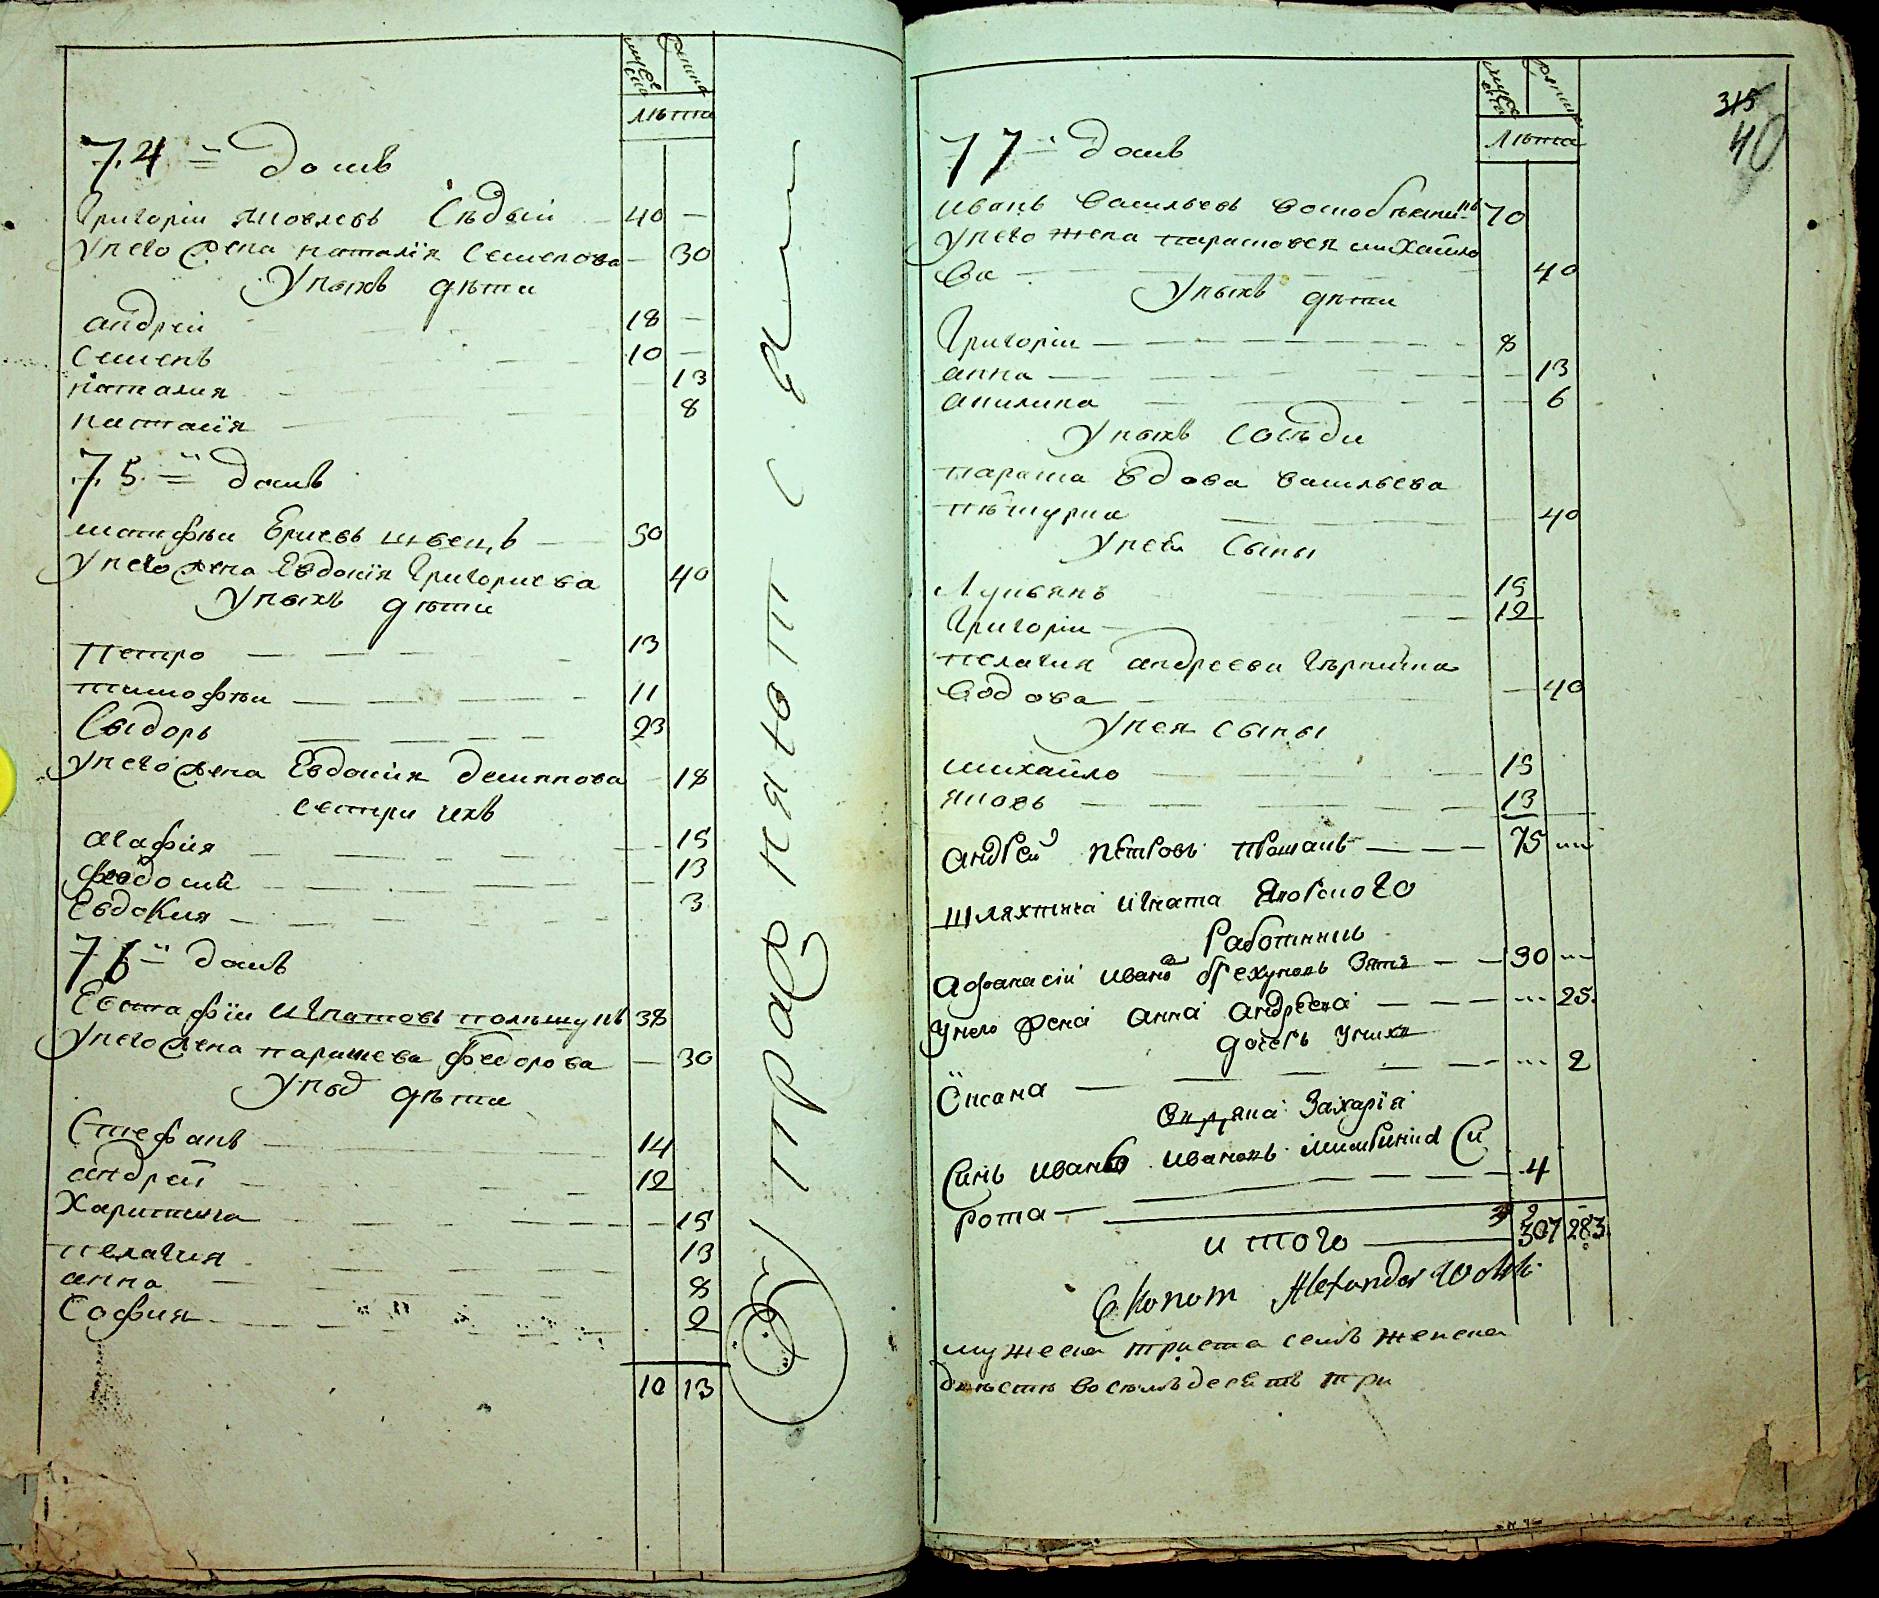 мужеска
женска
лѣта
74 = домъ
Григорій Яковлевъ Сѣдый 40 —
У него жена Наталія Семенова — 30
У нихъ дѣти
Андрей 18 —
Семенъ 10 —
Наталия — 13
Настасія 8
75 = домъ
Матфѣи Юриевъ швецъ — 50
У него жена Евдокія Григориева 40
У нихъ дѣти
Петро — — — 13
Тимофѣи — — — 11
Сыдоръ — — — 23
У него жена Евдокия Демянова — 18
сестри ихъ
Агафия — — — 15
Феодосий — — — 13
Евдокия — — — 3
76 = домъ
Евстафіи Игнатовъ 38
У него жена Параскева Федорова — 30
дѣти
Стефанъ — 14
Андрей — 12
Харитина — 15
Пелагия 13
Анна — 8
София — 2
10 13
мужеска
женска
лѣта
315
40
77 = домъ
Иванъ Васильевъ 70
У него жена Парасковея Михайло
ва — 40
У нихъ дѣти
Григоріи — — — 8
Анна — — — 13
Акилина — — — 6
У нихъ сосѣди
Параска вдова Васильева
40
У нея сыны
Лукьянъ 15
Григоріи — 12
Пелагия Андреева
вдова — 40
У нея сыны
Михайло — 15
Яковъ — 13
Андрей Петровъ — — — 75
Шляхтича Игната
Работникъ
Афанасій Ивановъ зять — — 30
У него жена Анна Андреева — — — 25.
дочерь у нихъ
Оксана — — — 2
Захарія
Синъ Иванъ Ивановъ Си
рота — 4
итого — 307 283.
Ekonom Alexander
мужеска триста семъ женска
двѣстѣ восемьдесятъ три